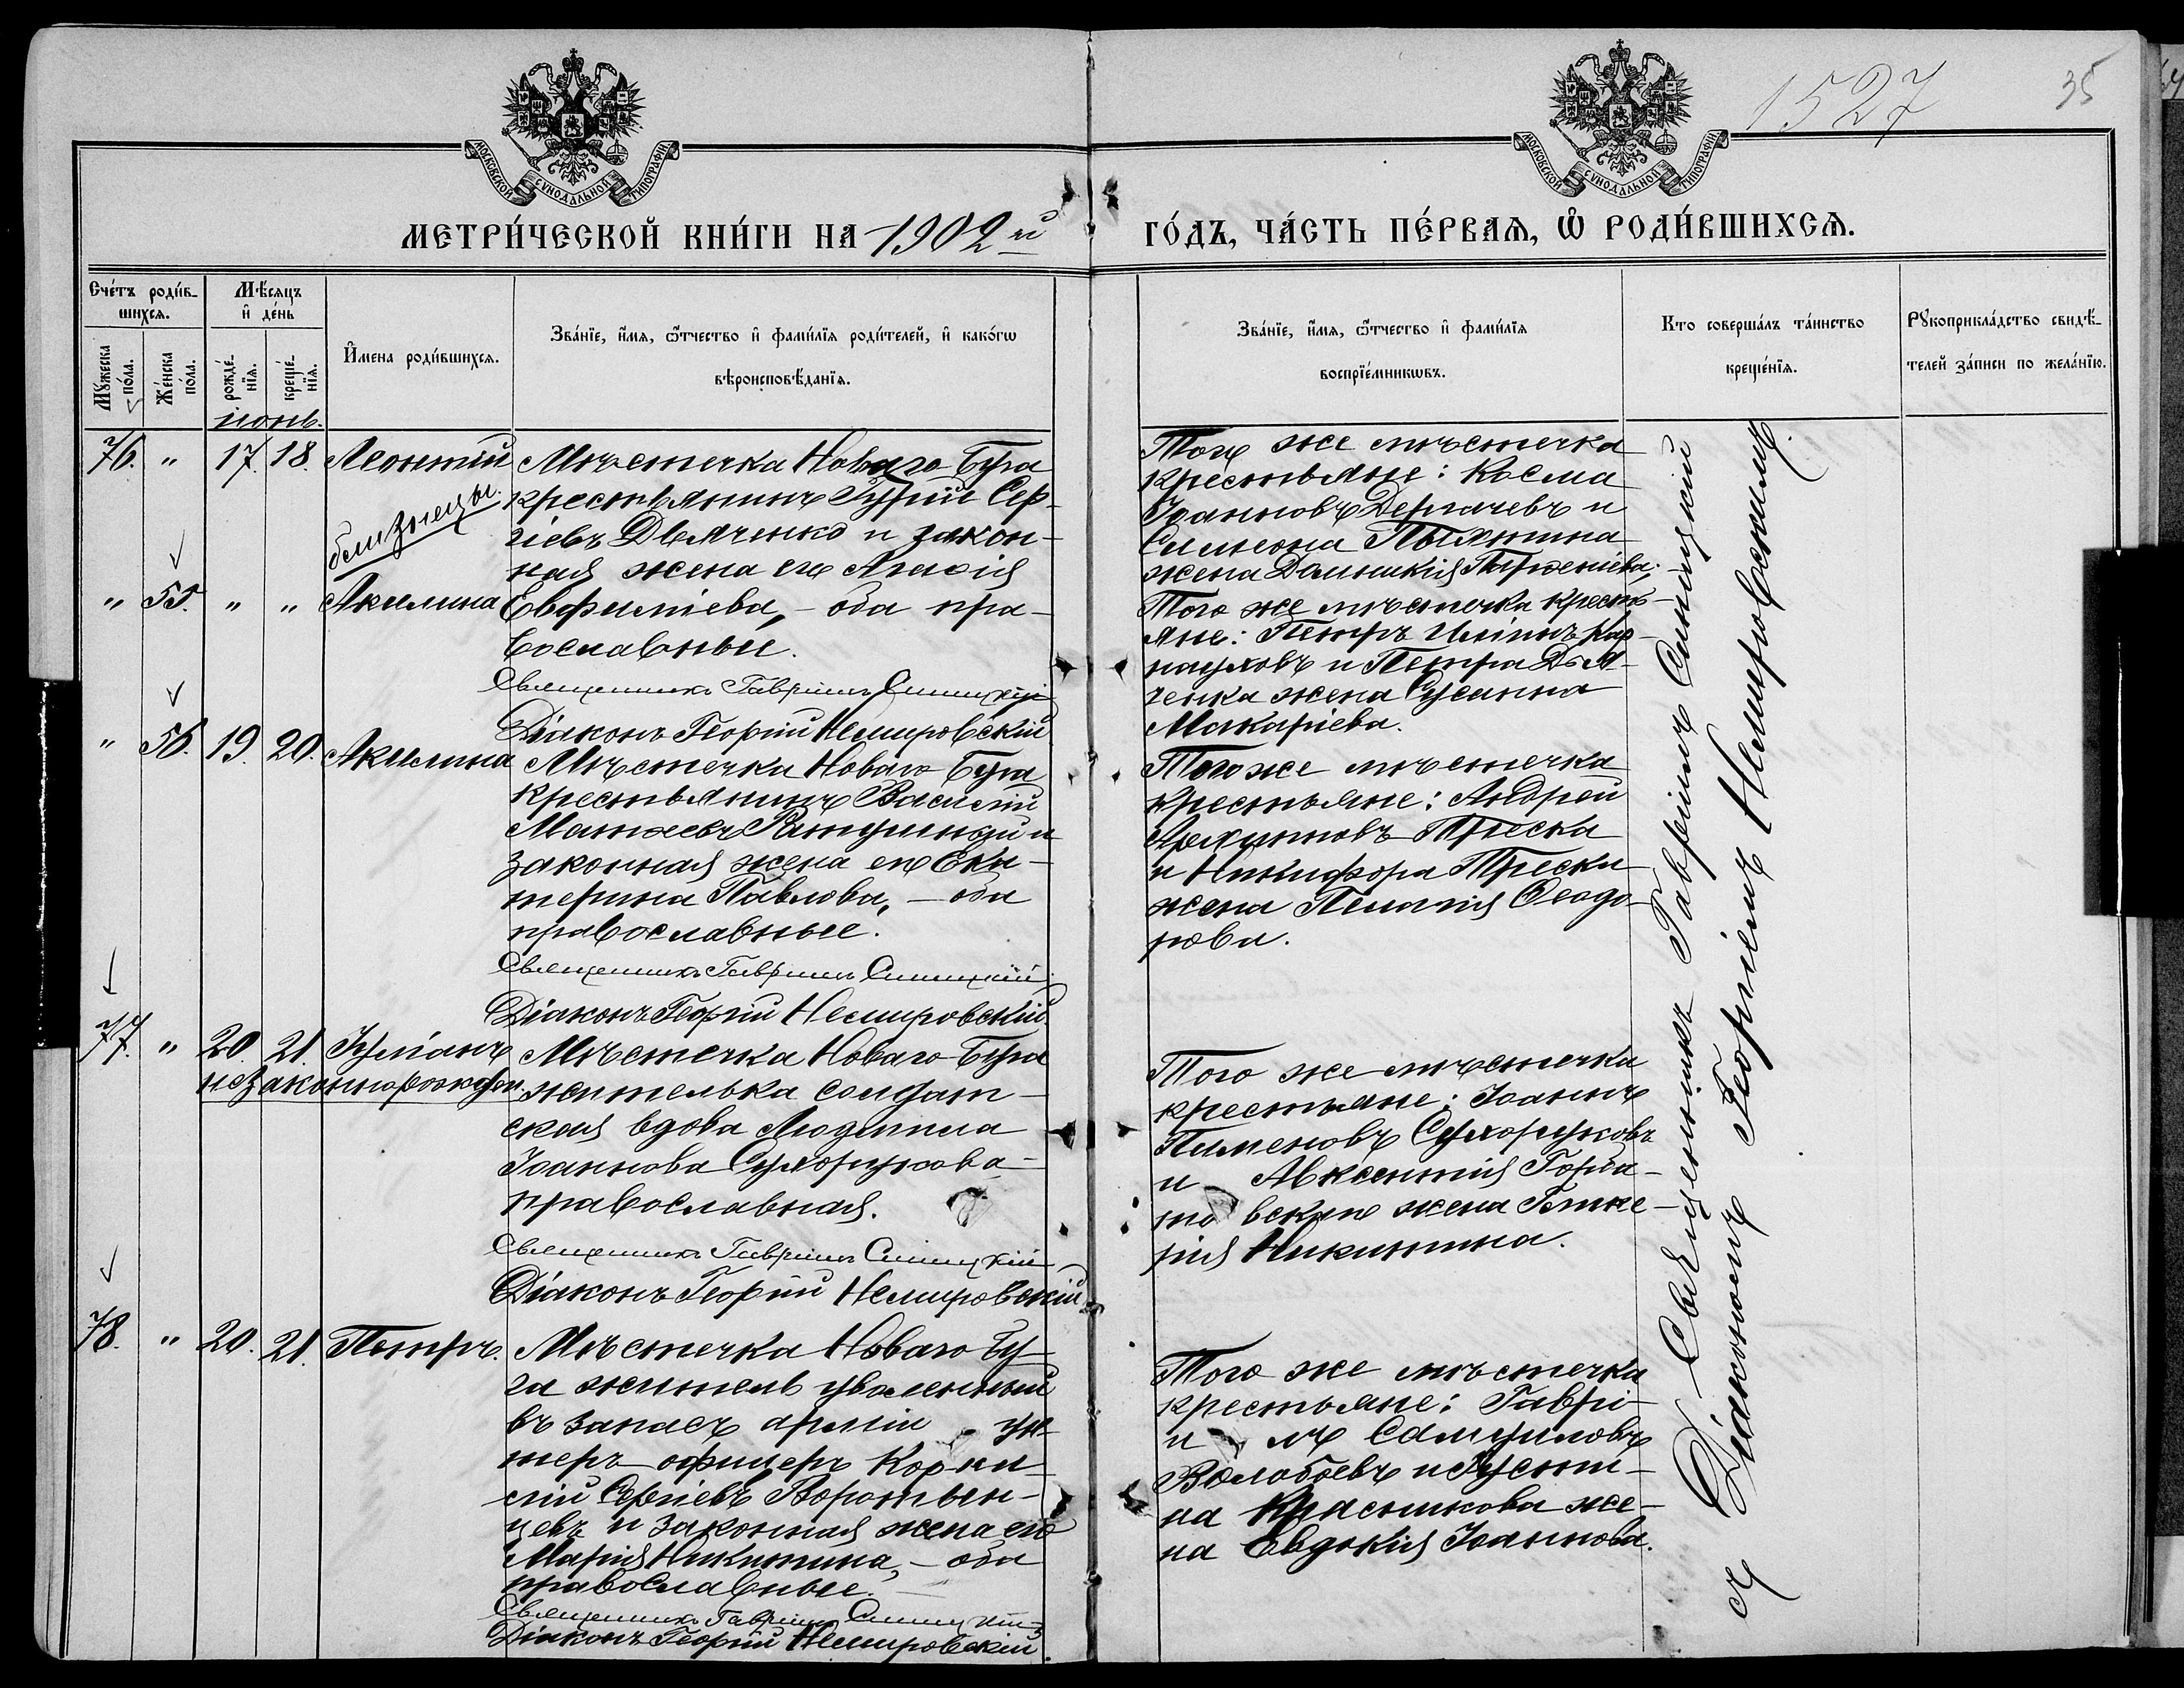 1527
35
МОСКОВСКОЙ СѴНОДАЛЬНОЙ ТИПОГРАФІИ
МОСКОВСКОЙ СѴНОДАЛЬНОЙ ТИПОГРАФІИ
МЕТРИ́ЧЕСКОЙ КНИ́ГИ НА 1902й ГО́ДЪ, ЧА́СТЬ ПЕ́РВАѦ, Ѡ҆ РОДИ́ВШИХСѦ.
Счétъ роди́вшихсѧ.
Мꙋ́жеска по́ла.
Же́нска по́ла.
Мѣ́сяцъ и҆ де́нь
рожде́нїѧ.
креще́нїѧ.
И҆мена роди́вшихсѧ.
Зва́нїе, и҆́мѧ, ѻ҆́тчество и҆ фами́лїѧ роди́телей, и҆ како́гѡ
вѣроисповѣ́данїѧ.
Зва́нїе, и҆́мѧ, ѻ҆́тчество и҆ фами́лїѧ
воспрїе́мникѡвъ.
Кто̀ соверша́лъ та́инство
креще́нїѧ.
Рꙋкоприкла́дство свидѣ́-
телей за́писи по жела́нїю.
іюнь.
76. " 17. 18. Леонтій
близнецы.
" 55. " " Акилина
Мѣстечка Новаго Буга
крестьянинъ Гурій Сер-
гіевъ Дьяченко и закон-
ная жена его Анасія
Евфиміева, - оба пра-
вославные.
Священникъ Гавріилъ Синицкій
Діаконъ Георгій Немировскій
Того же мѣстечка
крестьяне: Косма
Іоанновъ Дергачевъ и
Симеона
жена Домникія
Того же мѣстечка кресть-
яне: Петръ Карнауховъ и Петра Дья-
ченка жена Сусанна
Макаріева.
" 56. 19. 20. Акилина
Мѣстечка Новаго Буга
крестьянинъ Василій
и
законная жена его Ека-
терина Павлова, - оба
православные.
Священникъ Гавріилъ Синицкій
Діаконъ Георгій Немировскій
Того же мѣстечка
крестьяне: Андрей
Треска
и Никифора Трески
жена Пелагія Ѳеодо-
рова.
77. " 20. 21. Іуліанъ
незаконнорожден.
Мѣстечка Новаго Буга
жителька солдат-
ская вдова Людмила
Іоаннова Сухорукова -
православная.
Священникъ Гавріилъ Синицкій
Діаконъ Георгій Немировскій
Того же мѣстечка
крестьяне: Іоаннъ
Пименовъ Сухоруковъ
и Авксентія Горба-
товскаго жена Глике-
рія Никитина.
78. " 20. 21. Петръ.
Мѣстечка Новаго Бу-
га житель уволенный
въ запасъ арміи ун-
теръ-офицеръ Корни-
лій Сергіевъ Воротын-
цевъ и законная жена его
Марія Никитина, - оба
православные.
Священникъ Гавріилъ Синицкій
Діаконъ Георгій Немировскій.
Того же мѣстечка
крестьяне: Гаврі-
илъ Самуиловъ
Волобоевъ и Іусти-
на Красникова же-
на Евдокія Іоаннова.
Священникъ Гавріилъ Синицкій
съ Діакономъ Георгіемъ Немировскимъ.